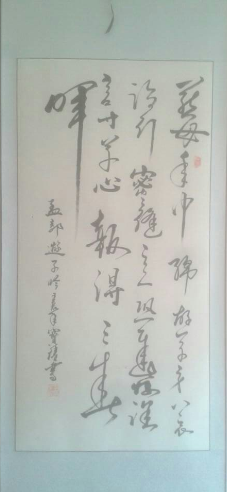 慈母手中綫遊子身上衣
臨行密密縫意恐遲遲歸誰
言寸草心報得三春
暉
孟郊遊子吟書